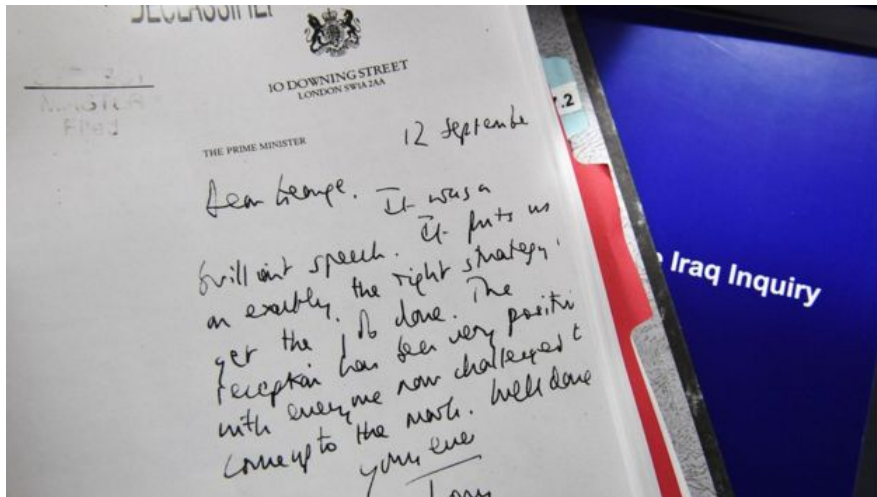 DECLASSIFIE
MASTER
Filed
10 DOWNING STREET
LONDON SW1A 2AA
THE PRIME MINISTER
12 Septembe
Dear George. It was a
brilliant speech. It puts us
on exactly the right strategy
get the job done. The
reception has been very positi
with everyone now challenged t
come up to the mark. Well done
yours ever
Tony
7.2
Iraq Inquiry